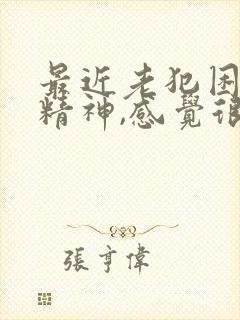 最近老犯困
精神,感覺很
張亨偉